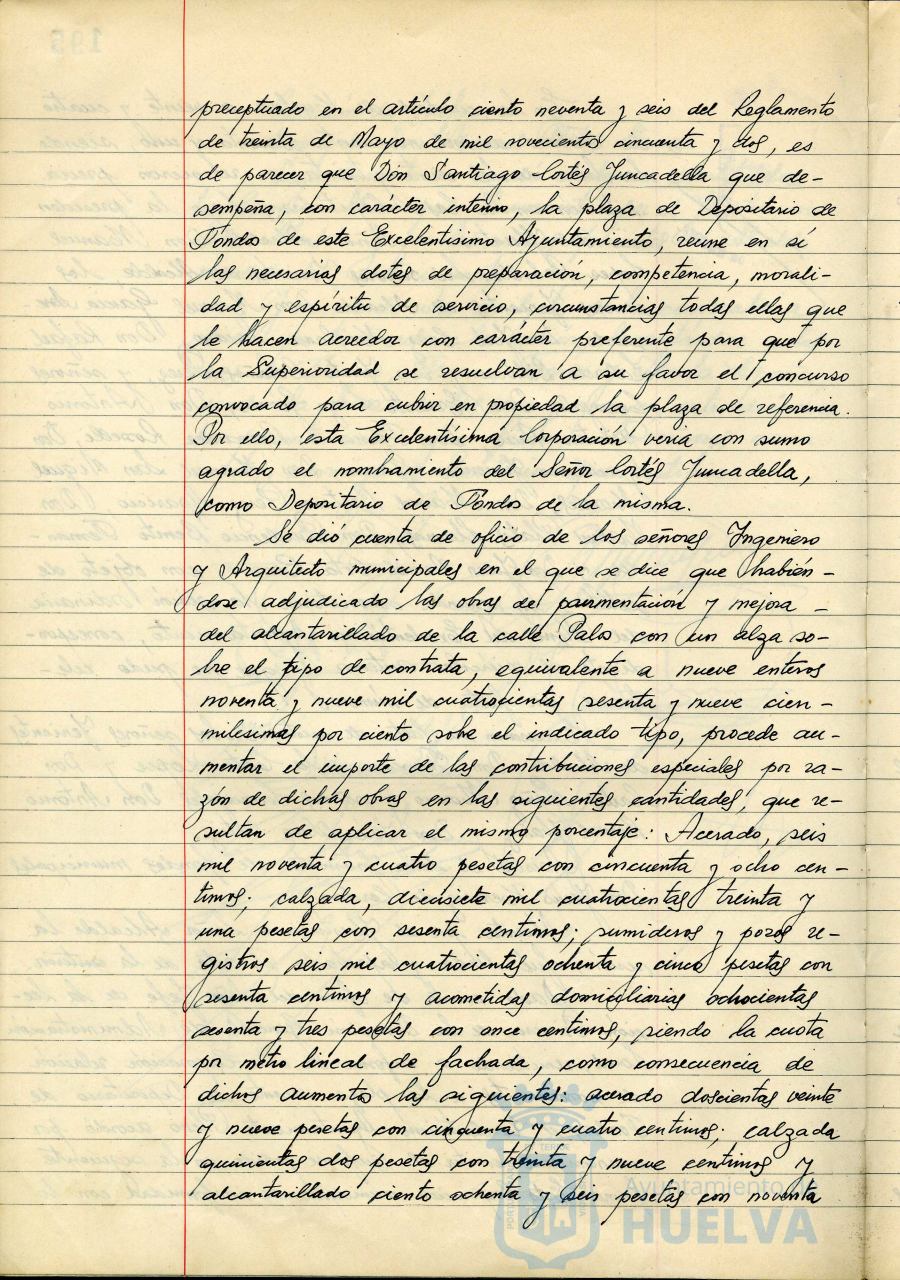 preceptuado en el artículo ciento noventa y seis del Reglamento
de treinta de Mayo de mil novecientos cincuenta y dos, es
de parecer que Don Santiago Cortés Juncadella que de-
sempeña, con carácter interino, la plaza de Depositario de
Fondos de este Excelentisimo Ayuntamiento, reune en sí
las necesarias dotes de preparación, competencia, morali-
dad y espíritu de servicio, circunstancias todas ellas que
le hacen acreedor con carácter preferente para que por
la Superioridad se resuelvan a su favor el concurso
convocado para cubrir en propiedad la plaza de referencia.
Por ello, esta Excelentísima Corporación vería con sumo
agrado el nombramiento del Señor Cortés Juncadella,
como Depositario de Fondos de la misma.
Se dió cuenta de oficio de los señores Ingeniero
y Arquitecto municipales en el que se dice que habién-
dose adjudicado las obras de pavimentación y mejora -
del alcantarillado de la calle Palos con un alza so-
bre el tipo de contrata, equivalente a nueve enteros
noventa y nueve mil cuatrocientas sesenta y nueve cien-
milesimas por ciento sobre el indicado tipo, procede au-
mentar el importe de las contribuciones especiales por ra-
zón de dichas obras en las siguientes cantidades, que re-
sultan de aplicar el mismo porcentaje: Acerado, seis
mil noventa y cuatro pesetas con cincuenta y ocho cen-
timos; calzada, diecisiete mil cuatrocientas treinta y
una pesetas con sesenta centimos; sumideros y pozos re-
gistros seis mil cuatrocientas ochenta y cinco pesetas con
sesenta centimos y acometidas domiciliarias ochocientas
sesenta y tres pesetas con once centimos, siendo la cuota
por metro lineal de fachada, como consecuencia de
dichos aumentos las siguientes: acerado doscientas veinte
y nueve pesetas con cincuenta y cuatro centimos; calzada
quinientas dos pesetas con treinta y nueve centimos y
alcantarillado ciento ochenta y seis pesetas con noventa
Ayuntamiento de
HUELVA